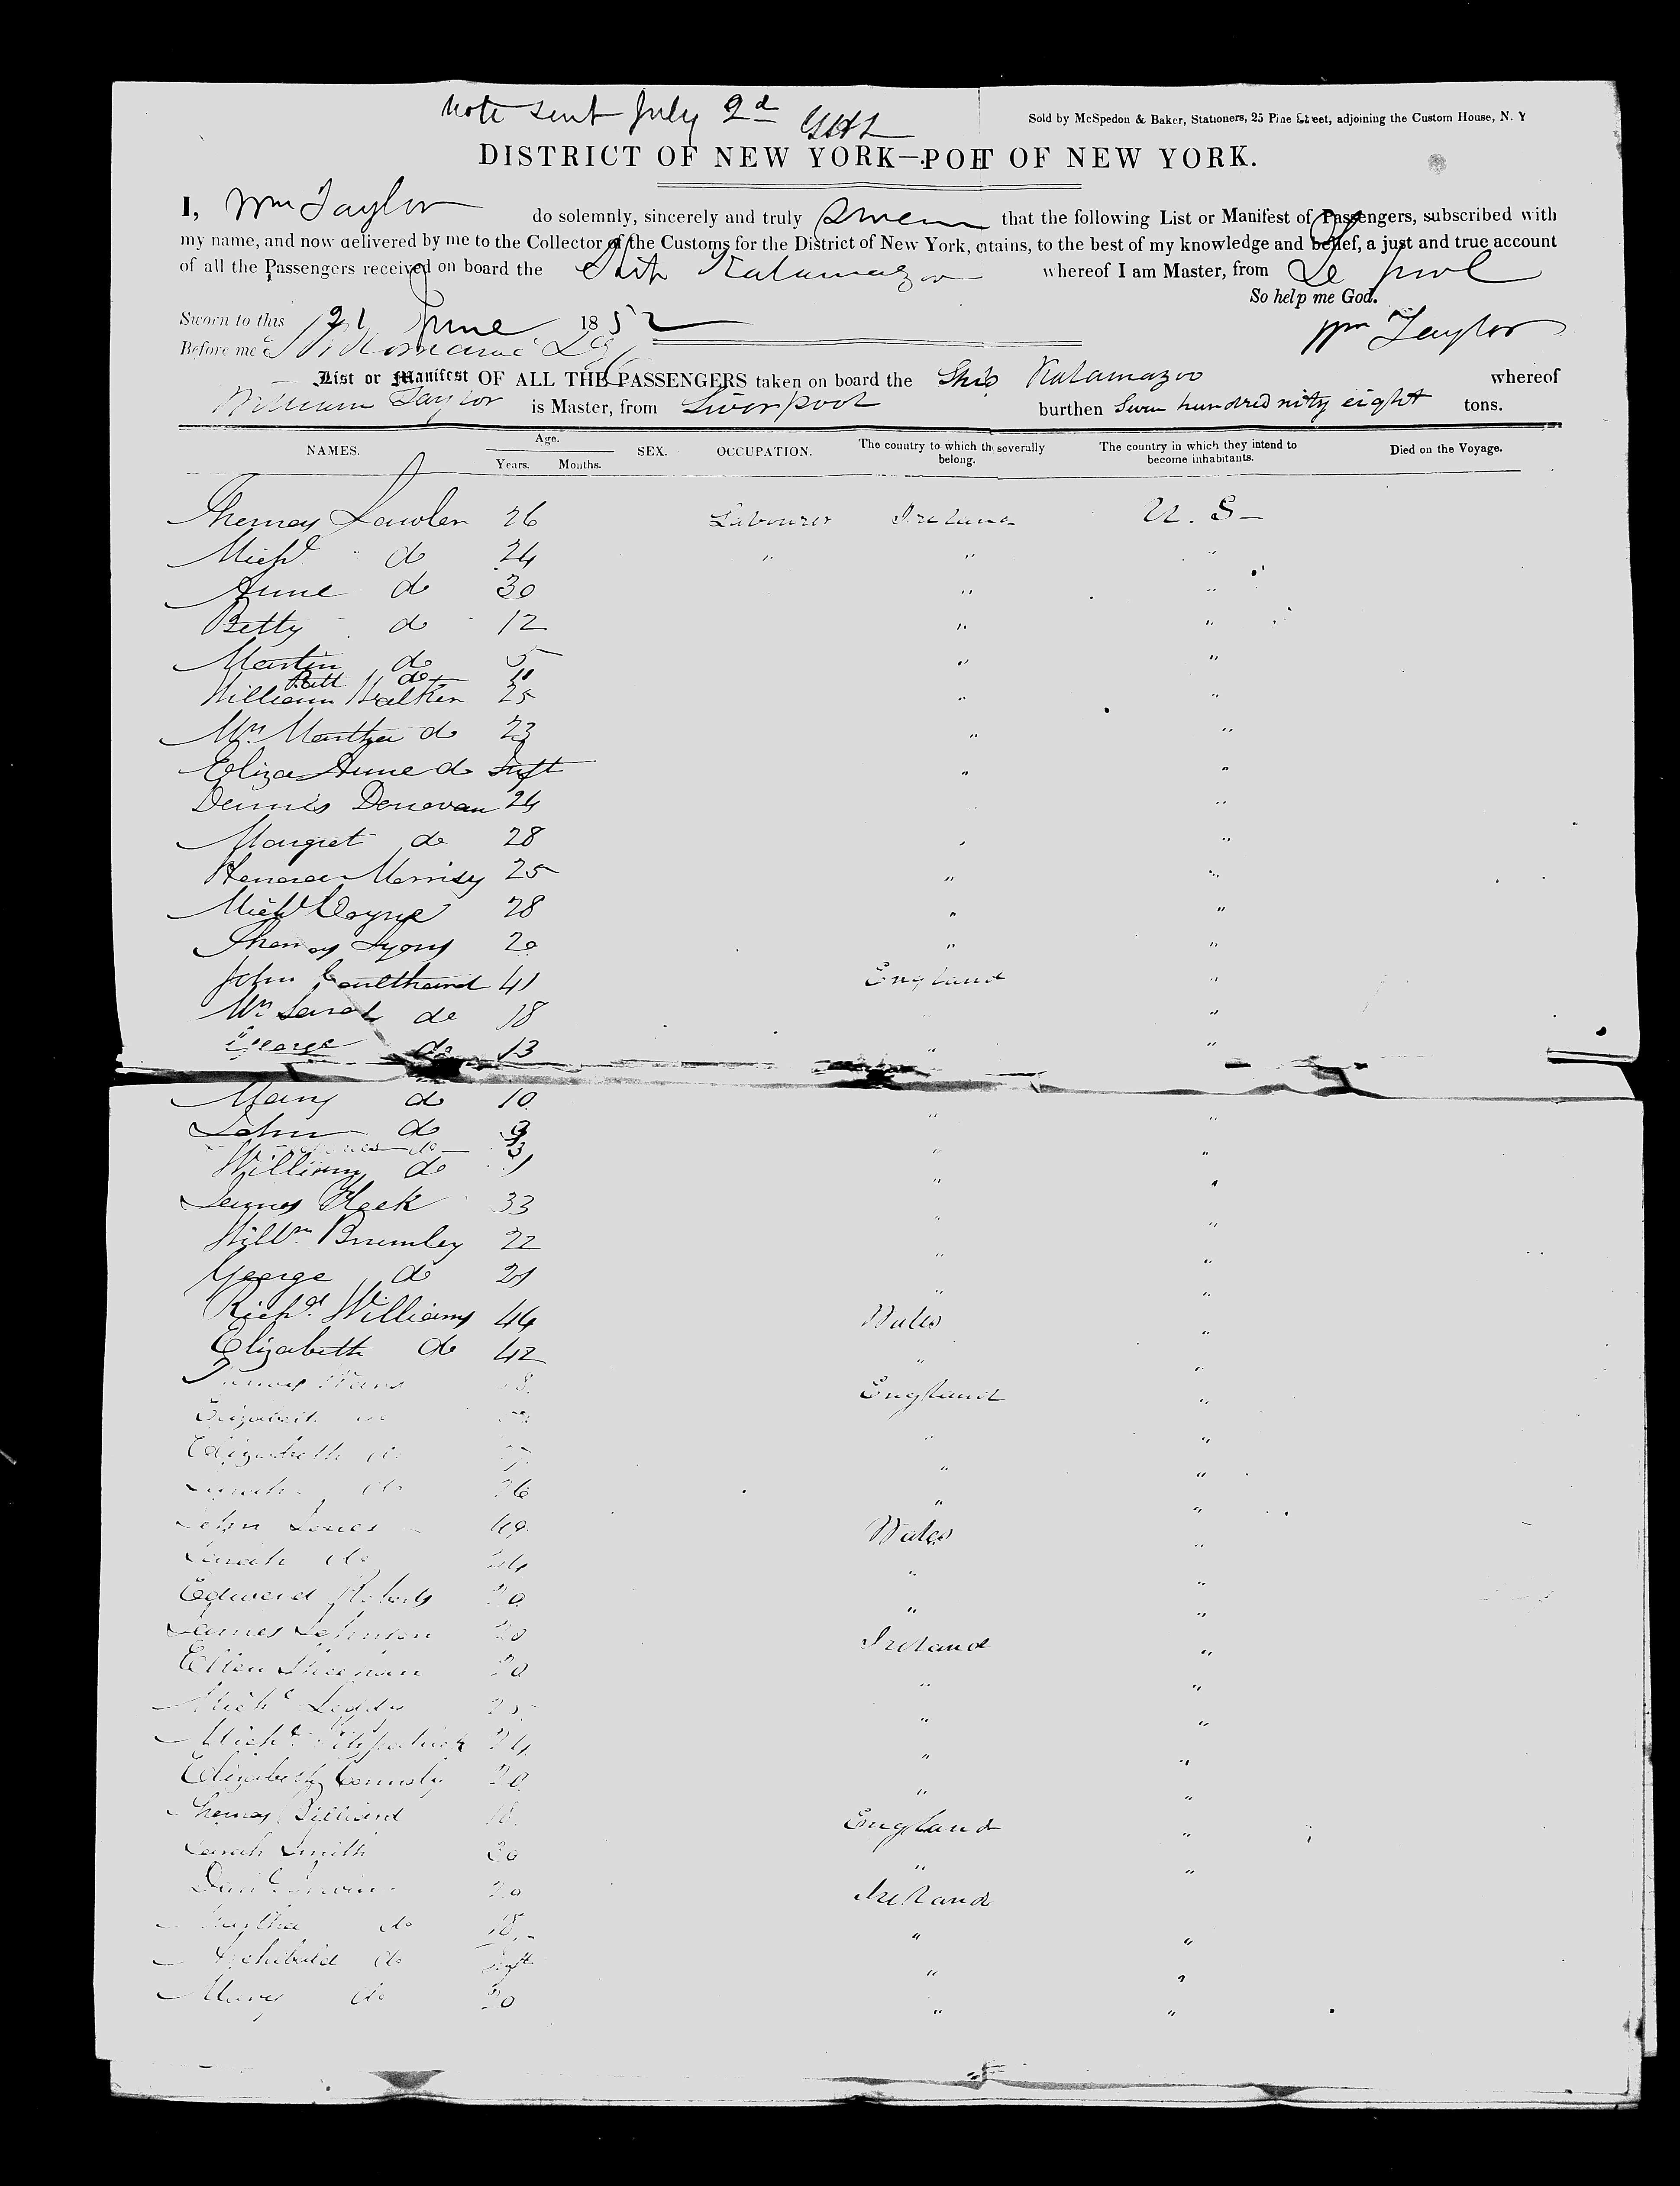 Note sent July 2d
Sold by McSpedon & Baker, Stationers, 25 Pine Street, adjoining the Custom House, N. Y
DISTRICT OF NEW YORK—PORT OF NEW YORK.
I, Wm Taylor do solemnly, sincerely and truly swear that the following List or Manifest of Passengers, subscribed with
my name, and now delivered by me to the Collector of the Customs for the District of New York, contains, to the best of my knowledge and belief, a just and true account
of all the Passengers received on board the Ship Kalamazoo whereof I am Master, from L pool
So help me God.
Sworn to this 21 June 1852 Wm Taylor
Before me
List or Manifest OF ALL THE PASSENGERS taken on board the Ship Kalamazoo whereof
William Taylor is Master, from Liverpool burthen Seven hundred nity eight tons.
NAMES. Age. Years. Months. SEX. OCCUPATION. The country to which they severally belong. The country in which they intend to become inhabitants. Died on the Voyage.
Thomas Lawler 26 Labourer Ireland U. S -
Michl " do 24 " " "
Anne do 30 " "
Betty do 12 " "
Martin do 5 " "
Batt do 11
William Walker 25 " "
Mrs Martha do 23 " "
Eliza Anne do Inft " "
Dennis Donovan 24 "
Margret do 28 " "
Honora Morrisy 25 " "
Michl 28 " "
Thomas Lyons 20 " "
John Coulthard 41 England "
Mrs Sarah do 18 "
George do 13 " "
Mary do 10 " "
John do 9 " "
do 3
William do 1 " "
James 33 " "
Willm Brumley 22 " "
George do 21 " "
Richd Williams 44 Wales "
Elizabeth do 42 " "
England "
Elizabeth do "
Elizabeth do " "
Sarah do 26 " "
John Jones 49 Wales "
Sarah do 24 " "
Edward Roberts 20 " "
James Johnson 20 Ireland "
Ellen Sheehan 20 " "
Michl Leddy 25 " "
Michl Fitzpatrick 24 " "
Elizabeth Connoly 20 " "
Thomas 18 England "
Sarah Smith 30 " "
Danl 20 Ireland
Martha do 18 " "
Archibald do Inft " "
Mary do 20 " "